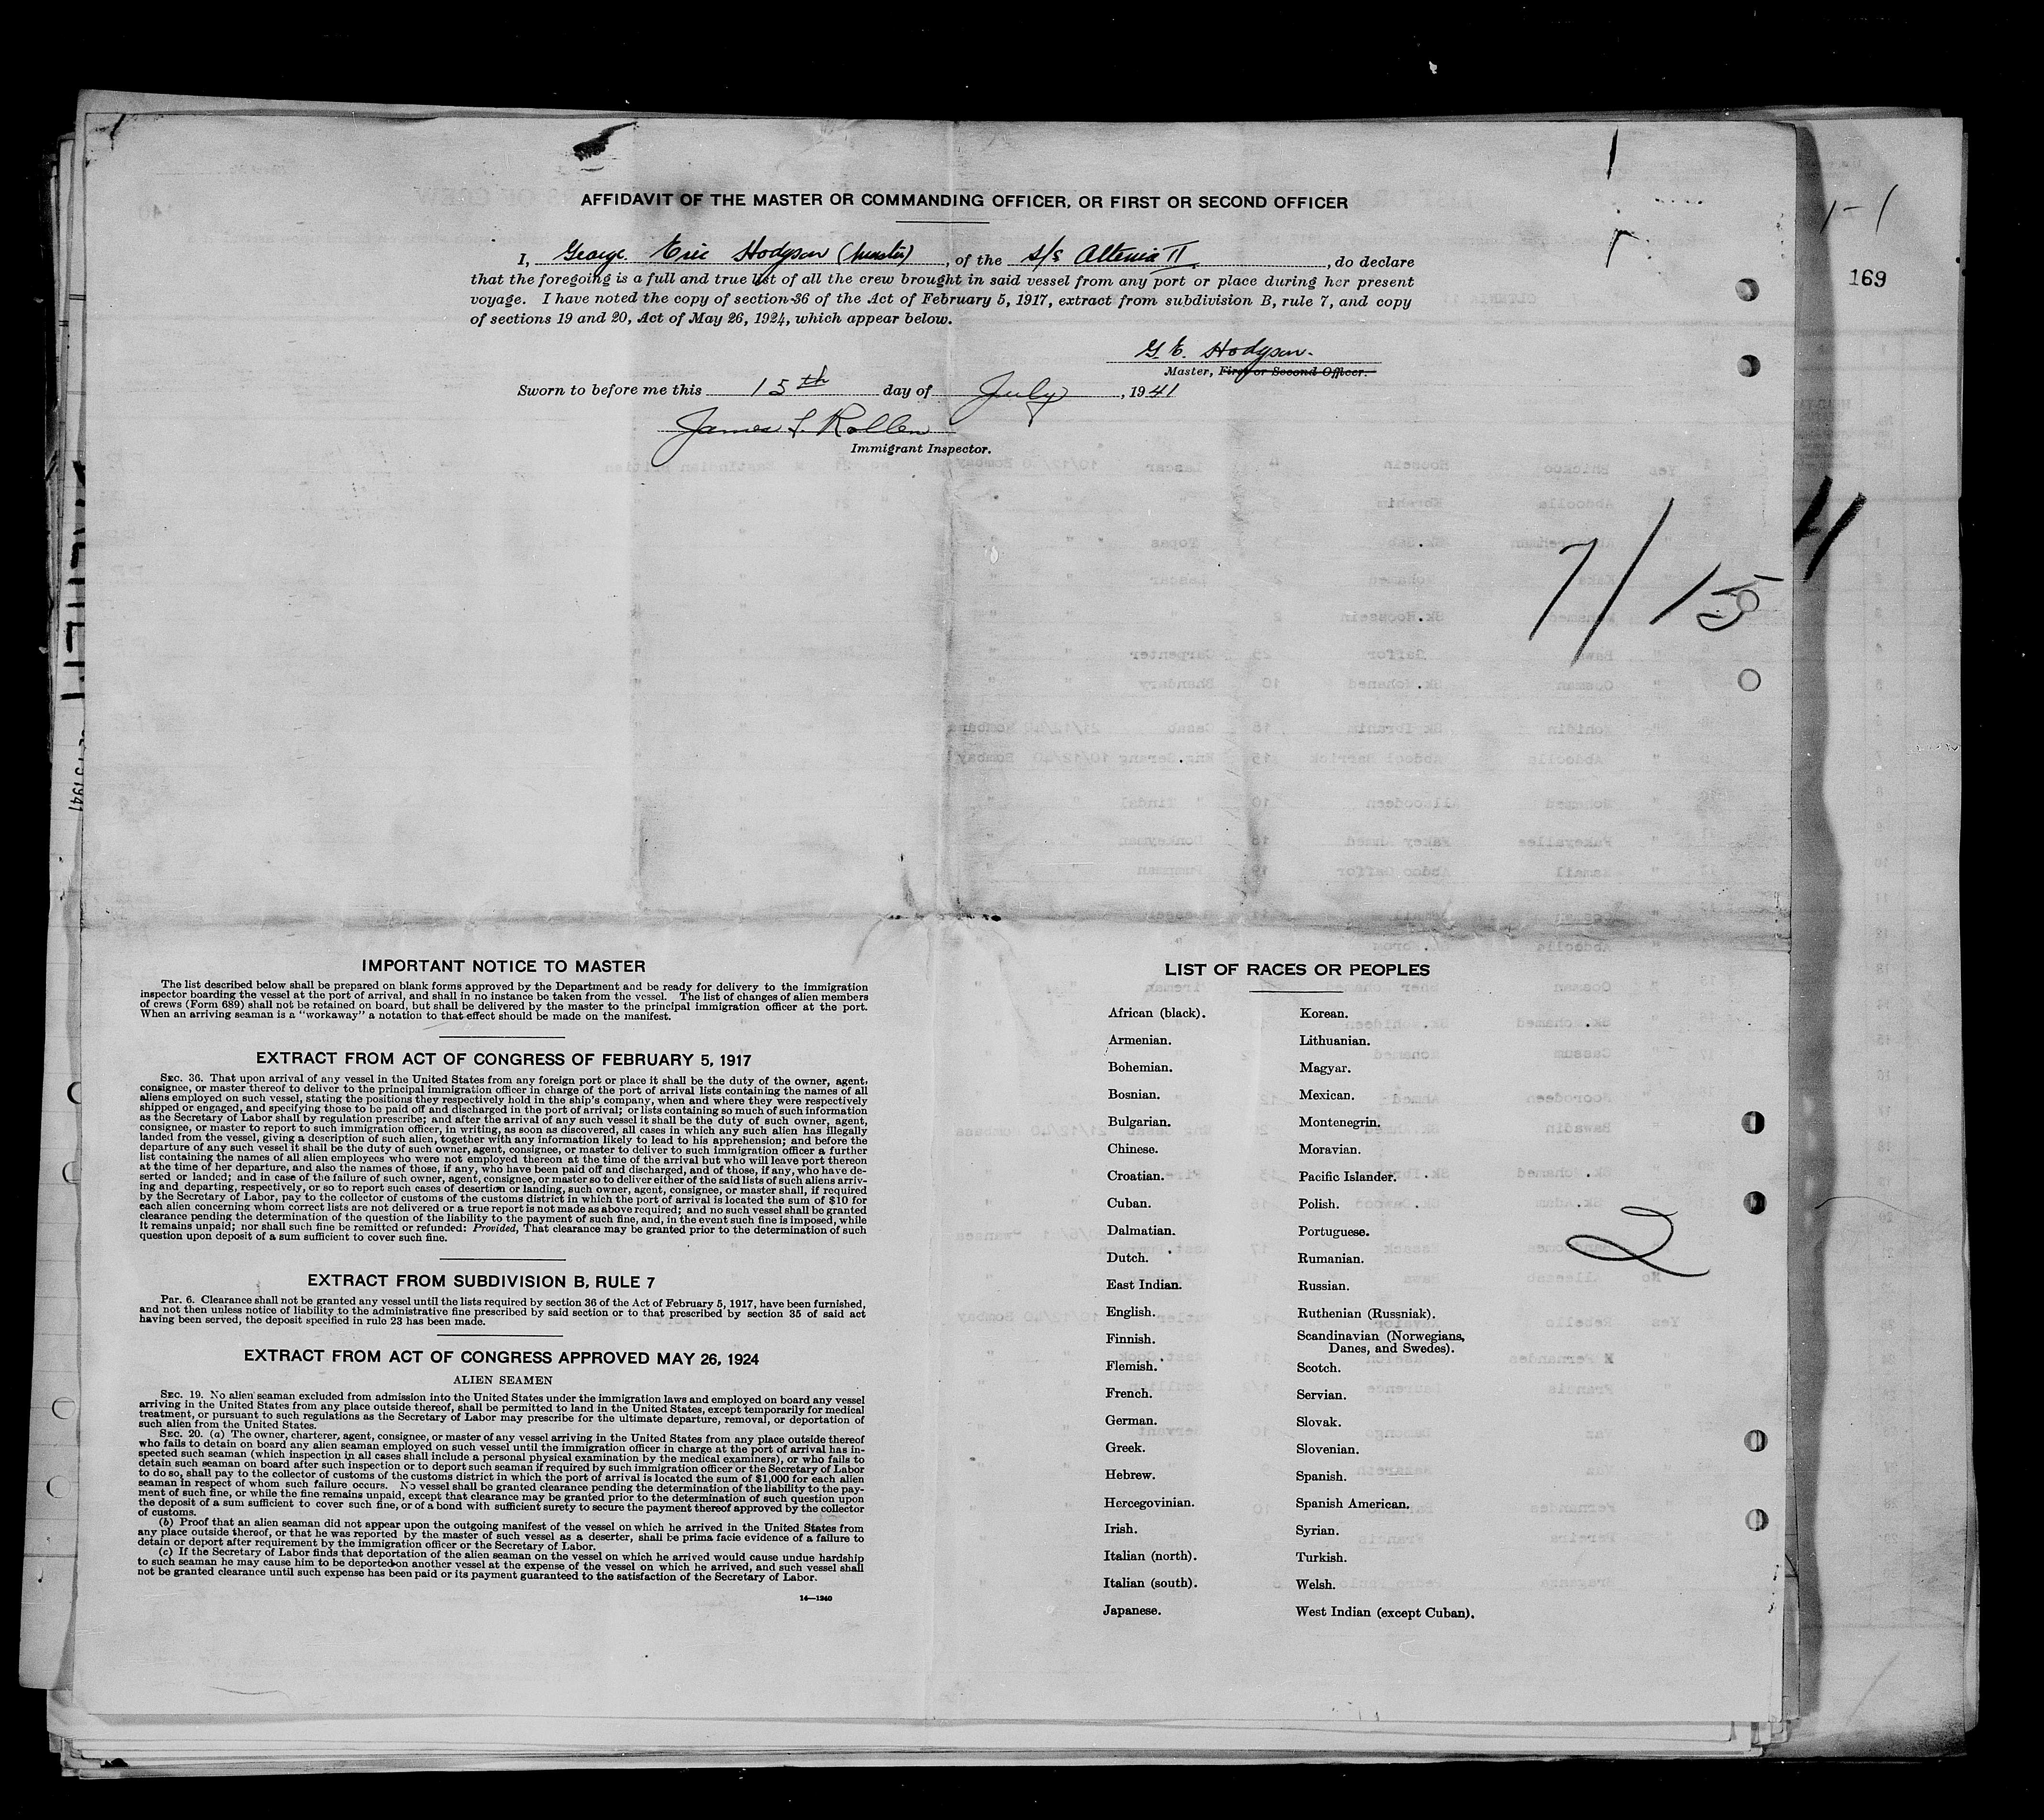 AFFIDAVIT OF THE MASTER OR COMMANDING OFFICER, OR FIRST OR SECOND OFFICER
I, George Eric Hodgson (Master), of the s/s Altenia II, do declare
that the foregoing is a full and true list of all the crew brought in said vessel from any port or place during her present
voyage. I have noted the copy of section 36 of the Act of February 5, 1917, extract from subdivision B, rule 7, and copy
of sections 19 and 20, Act of May 26, 1924, which appear below.
G. E. Hodgson.
Master, First or Second Officer.
Sworn to before me this 15th day of July, 1941
James
Immigrant Inspector.
169
7/15
IMPORTANT NOTICE TO MASTER
The list described below shall be prepared on blank forms approved by the Department and be ready for delivery to the immigration
inspector boarding the vessel at the port of arrival, and shall in no instance be taken from the vessel. The list of changes of alien members
of crews (Form 689) shall not be retained on board, but shall be delivered by the master to the principal immigration officer at the port.
When an arriving seaman is a "workaway" a notation to that effect should be made on the manifest.
EXTRACT FROM ACT OF CONGRESS OF FEBRUARY 5, 1917
SEC. 36. That upon arrival of any vessel in the United States from any foreign port or place it shall be the duty of the owner, agent,
consignee, or master thereof to deliver to the principal immigration officer in charge of the port of arrival lists containing the names of all
aliens employed on such vessel, stating the positions they respectively hold in the ship's company, when and where they were respectively
shipped or engaged, and specifying those to be paid off and discharged in the port of arrival; or lists containing so much of such information
as the Secretary of Labor shall by regulation prescribe; and after the arrival of any such vessel it shall be the duty of such owner, agent,
consignee, or master to report to such immigration officer, in writing, as soon as discovered all cases in which any such alien has illegally
landed from the vessel, giving a description of such alien, together with any information likely to lead to his apprehension; and before the
departure of any such vessel it shall be the duty of such owner, agent, consignee, or master to deliver to such immigration officer a further
list containing the names of all alien employees who were not employed thereon at the time of the arrival but who will leave port thereon
at the time of her departure, and also the names of those, if any, who have been paid off and discharged, and of those, if any, who have de-
serted or landed; and in case of the failure of such owner, agent, consignee, or master so to deliver either of the said lists of such aliens arriv-
ing and departing, respectively, or so to report such cases of desertion or landing, such owner, agent, consignee, or master shall, if required
by the Secretary of Labor, pay to the collector of customs of the customs district in which the port of arrival is located the sum of $10 for
each alien concerning whom correct lists are not delivered or a true report is not made as above required; and no such vessel shall be granted
clearance pending the determination of the question of the liability to the payment of such fine, and, in the event such fine is imposed, while
it remains unpaid; nor shall such fine be remitted or refunded: Provided, That clearance may be granted prior to the determination of such
question upon deposit of a sum sufficient to cover such fine.
EXTRACT FROM SUBDIVISION B, RULE 7
PAR. 6. Clearance shall not be granted any vessel until the lists required by section 36 of the Act of February 5, 1917, have been furnished,
and not then unless notice of liability to the administrative fine prescribed by said section or to that prescribed by section 35 of said act
having been served, the deposit specified in rule 23 has been made.
EXTRACT FROM ACT OF CONGRESS APPROVED MAY 26, 1924
ALIEN SEAMEN
SEC. 19. No alien seaman excluded from admission into the United States under the immigration laws and employed on board any vessel
arriving in the United States from any place outside thereof, shall be permitted to land in the United States, except temporarily for medical
treatment, or pursuant to such regulations as the Secretary of Labor may prescribe for the ultimate departure, removal, or deportation of
such alien from the United States.
SEC. 20. (a) The owner, charterer, agent, consignee, or master of any vessel arriving in the United States from any place outside thereof
who fails to detain on board any alien seaman employed on such vessel until the immigration officer in charge at the port of arrival has in-
spected such seaman (which inspection in all cases shall include a personal physical examination by the medical examiners), or who fails to
detain such seaman on board after such inspection or to deport such seaman if required by such immigration officer or the Secretary of Labor
to do so, shall pay to the collector of customs of the customs district in which the port of arrival is located the sum of $1,000 for each alien
seaman in respect of whom such failure occurs. No vessel shall be granted clearance pending the determination of the liability to the pay-
ment of such fine, or while the fine remains unpaid, except that clearance may be granted prior to the determination of such question upon
the deposit of a sum sufficient to cover such fine, or of a bond with sufficient surety to secure the payment thereof approved by the collector
of customs.
(b) Proof that an alien seaman did not appear upon the outgoing manifest of the vessel on which he arrived in the United States from
any place outside thereof, or that he was reported by the master of such vessel as a deserter, shall be prima facie evidence of a failure to
detain or deport after requirement by the immigration officer or the Secretary of Labor.
(c) If the Secretary of Labor finds that deportation of the alien seaman on the vessel on which he arrived would cause undue hardship
to such seaman he may cause him to be deported on another vessel at the expense of the vessel on which he arrived, and such vessel shall
not be granted clearance until such expense has been paid or its payment guaranteed to the satisfaction of the Secretary of Labor.
14—1240
LIST OF RACES OR PEOPLES
African (black).
Armenian.
Bohemian.
Bosnian.
Bulgarian.
Chinese.
Croatian.
Cuban.
Dalmatian.
Dutch.
East Indian.
English.
Finnish.
Flemish.
French.
German.
Greek.
Hebrew.
Hercegovinian.
Irish.
Italian (north).
Italian (south).
Japanese.
Korean.
Lithuanian.
Magyar.
Mexican.
Montenegrin.
Moravian.
Pacific Islander.
Polish.
Portuguese.
Rumanian.
Russian.
Ruthenian (Russniak).
Scandinavian (Norwegians,
Danes, and Swedes).
Scotch.
Servian.
Slovak.
Slovenian.
Spanish.
Spanish American.
Syrian.
Turkish.
Welsh.
West Indian (except Cuban).
2